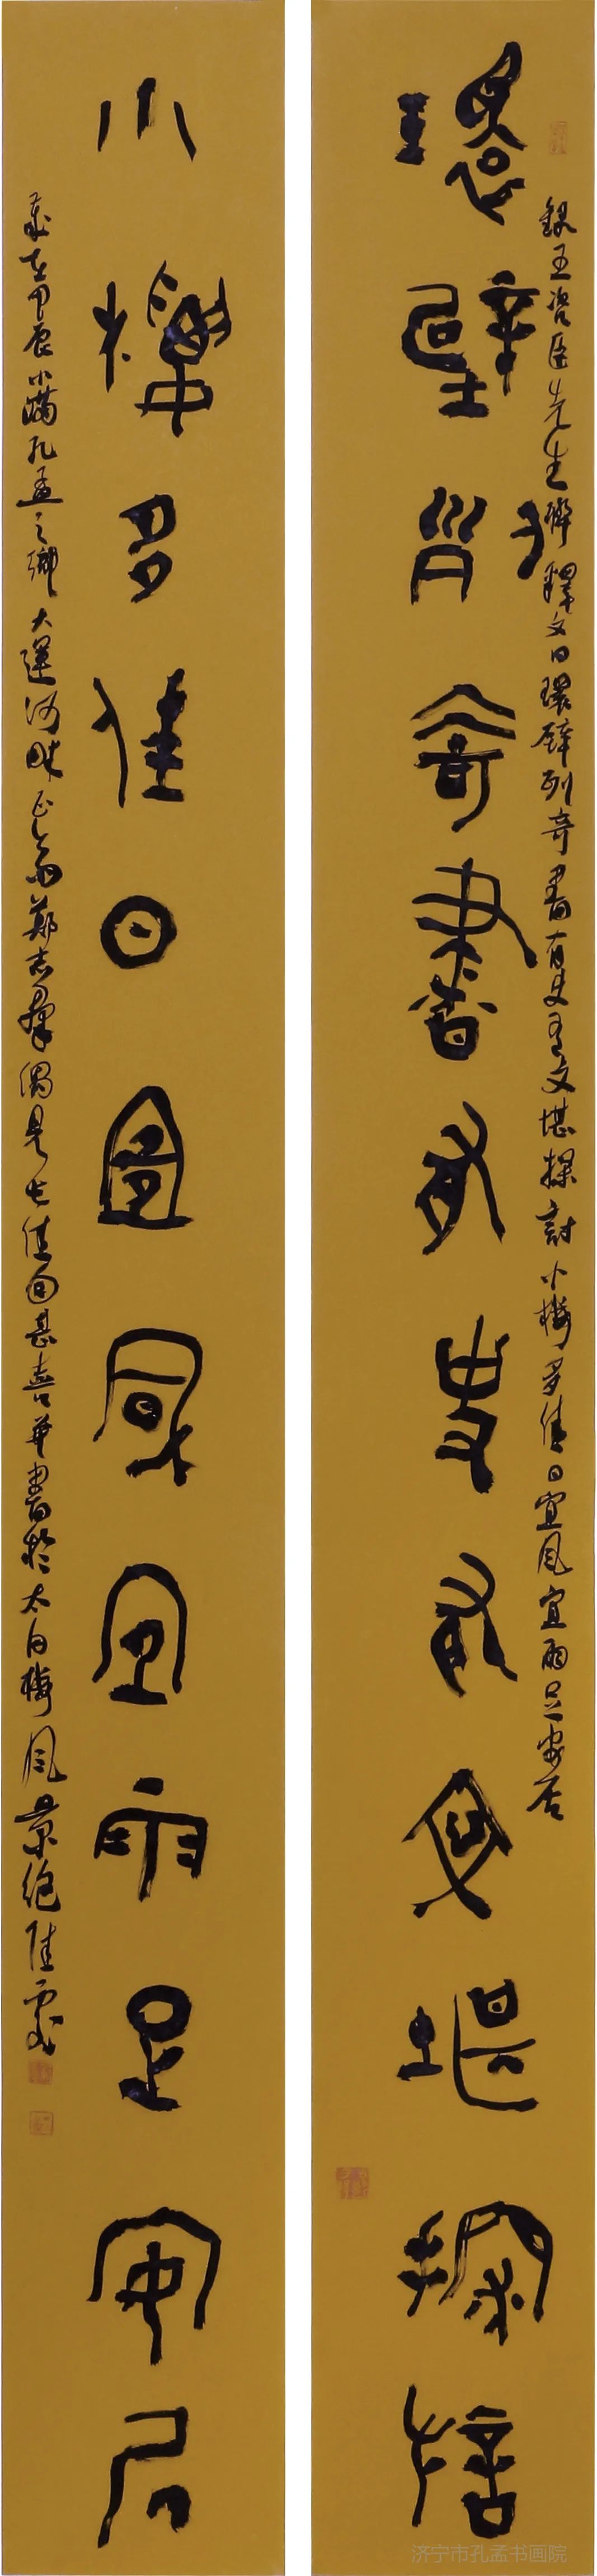 録王咨臣先生聯釋文曰環壁列奇書有史有文堪探討小樓多佳日宜風宜雨足安居
環壁列奇書有史有文堪探討
小樓多佳日宜風宜雨足安居
歲在甲辰小滿孔孟之鄉大運河畔鄭志群偶見此佳句甚喜並書於太白樓風景絕佳處
济宁市孔孟书画院